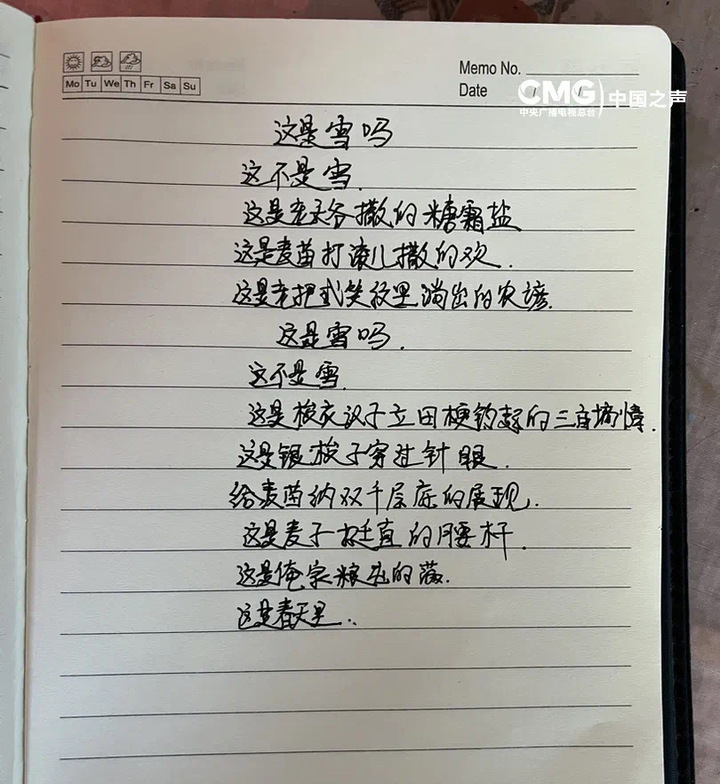 Mo Tu We Th Fr Sa Su
Memo No.
Date / /
CMG 中国之声
中央广播电视总台
这是雪吗
这不是雪.
这是老天爷撒的糖霜盐
这是麦苗打滚儿撒的欢.
这是老把式笑纹里淌出的农谚.
这是雪吗.
这不是雪.
这是 在田埂钩起的三亩墒情.
这是银梭子穿过针眼.
给麦苗纳双千层底的
这是麦子挺直的腰杆.
这是俺家粮囤的
这是春天里..